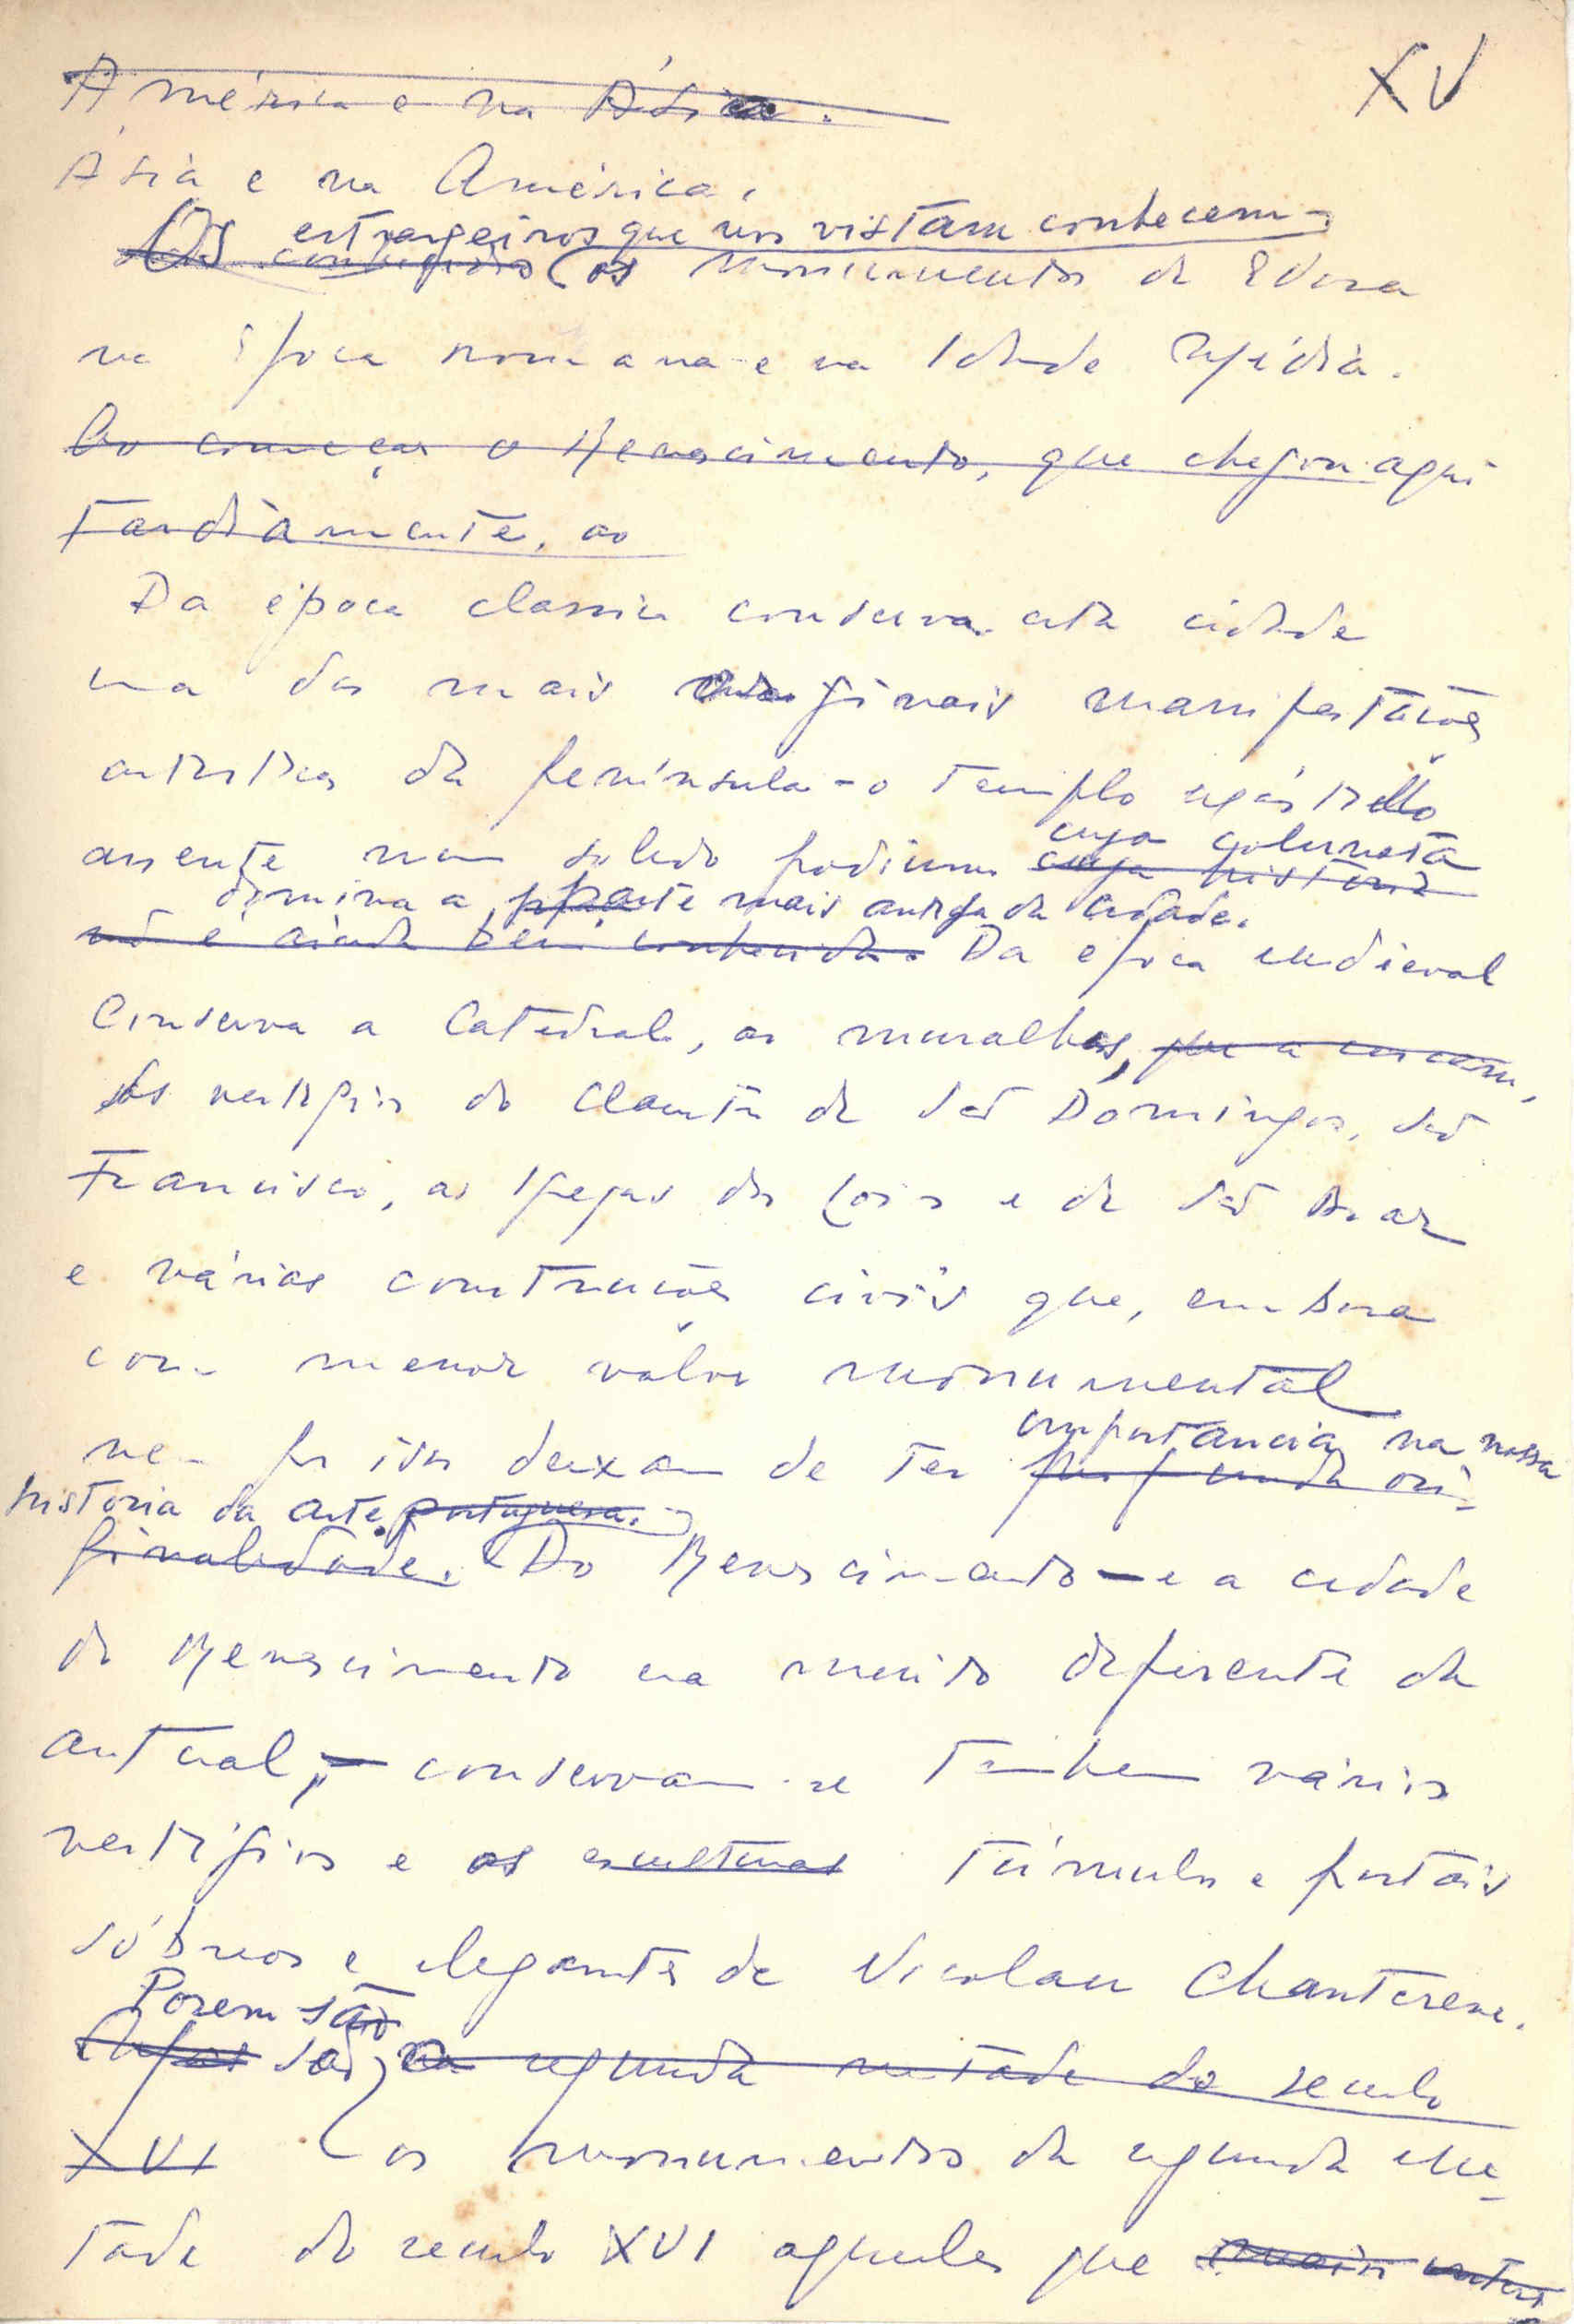 XV
América e na Ásia.
Ásia e na América.
estrangeiros que nos visitam conhecem
Os conhecidos os monumentos de Evora
na época romana e na Idade Média.
Ao começar o Renascimento, que chegou aqui
tardiamente, ao
Da época classica conserva esta cidade
uma das mais originais manifestações
artisticas da península - o templo
cuja colunata
assente num solido podium cuja historia
domina a parte mais antiga da cidade.
não é ainda bem conhecida. Da epoca medieval
Conserva a Catedral, as muralhas, que a cercam,
os vestigios do Claustro de São Domingos, São
Francisco, as Igrejas dos Loios e de São Braz
e várias construções civis que, embora
com menor valor monumental
importancia na nossa
nem por isso deixam de ter profunda ori-
historia da arte portuguesa.
ginalidade. Do Renascimento - e a cidade
do Renascimento era muito diferente da
actual, - conservam-se tambem vários
vestígios e as esculturas túmulos e portais
sóbrios e elegantes de Nicolau Chanterene.
Porem são
são na segunda metade do seculo
XVI os monumentos da segunda me-
tade do seculo XVI aqueles que mais